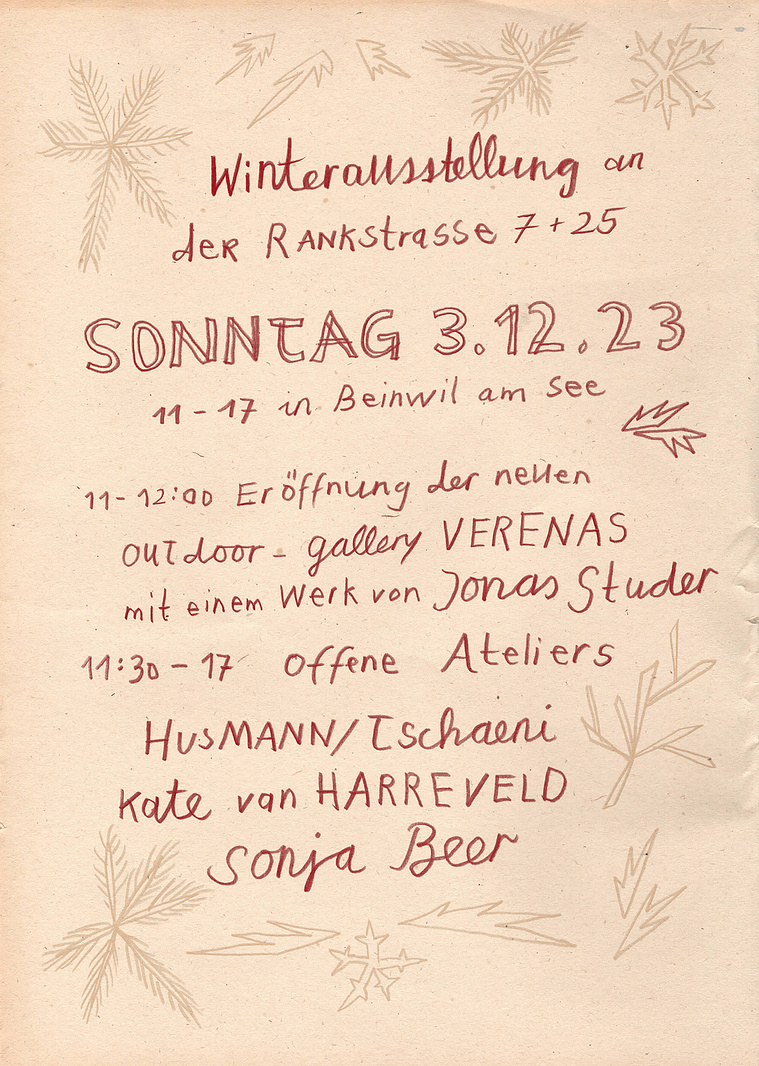 Winterausstellung an
der Rankstrasse 7 + 25
SONNTAG 3.12.23
11 - 17 in Beinwil am See
11 - 12:00 Eröffnung der neuen
outdoor - gallery VERENAS
mit einem Werk von Jonas Studer
11:30 - 17 Offene Ateliers
HUSMANN / Tschaeni
Kate van HARREVELD
Sonja Beer